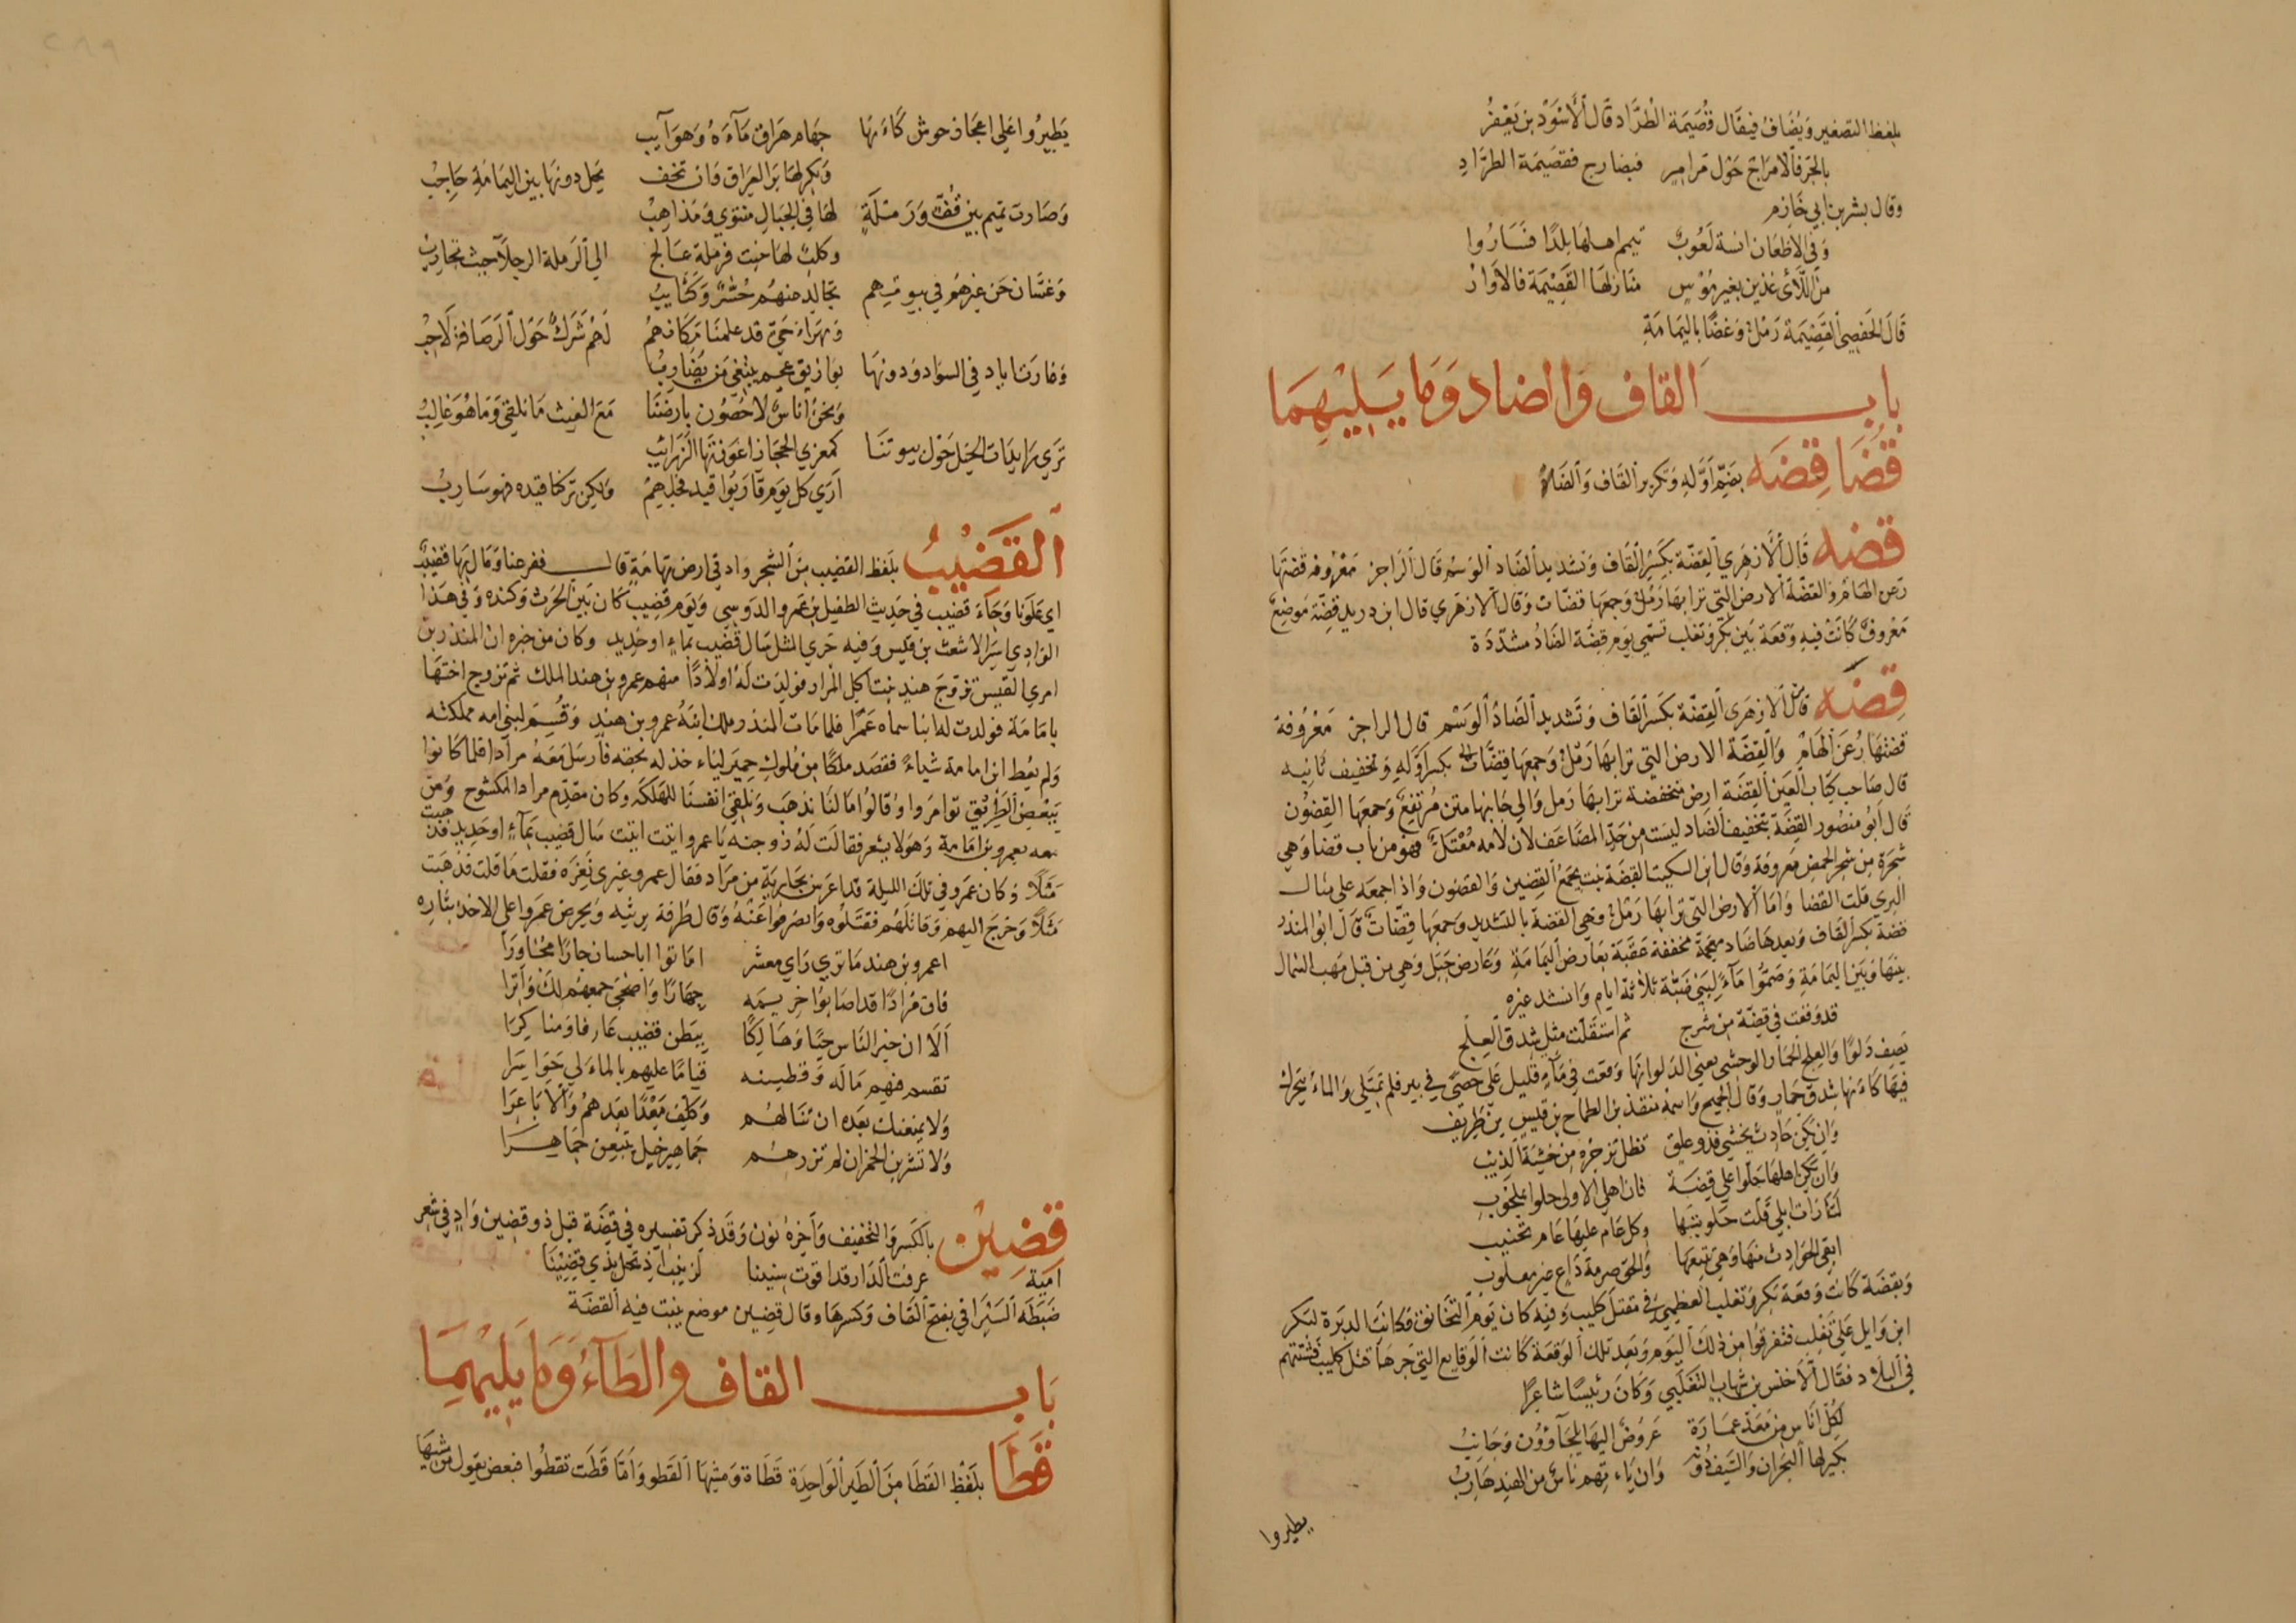 بلفظ التصغير ويضاف فيقال قُصَيمة الطرّاد قال الأسود بن يعفر
بالجر فالامراج حول مرامر فبضارج فقصيمة الطرّاد
وقال بشر بن ابي خازم
وفي الاظعان انسة لعوب تيمم اهلها بلدا فساروا
من اللائي غذين بغير بؤس منازلها القصيمة فالاوار
قال الحفصي القصيمة رمل وغضا باليمامة
باب القاف والضاد وما يليهما
قُضَاقِضَه بضم أوله وتكرير القاف والضاد
قضه قال الازهري القِضّة بكسر القاف وتشديد الضاد الوسم قال الراجز معروفة قضتها
رعن الهام والقضة الارض التي ترابها رمل وجمعها قضات وقال الازهري قال ابن دريد قضة موضع
معروف كانت فيه وقعة بين بكر وتغلب تسمي يوم قضة الضاد مشددة
قِضَه قال الازهري القضة بكسر القاف وتشديد الضاد الوسم قال الراجز معروفة
قضتها رعن الهام والقضة الارض التي ترابها رمل وجمعها قضات بكسر اوله وتخفيف ثانيه
قال صاحب كتاب العين القضة ارض منخفضة ترابها رمل والي جانبها متن مرتفع وجمعها القضون
قال أبو منصور القضة بتخفيف الضاد ليست من حد المضاعف لان لامه معتل فهو من باب قضا وهي
شجرة من شجر الحمض معروفة وقال ابن السكيت القضة نبت يجمع القضين والقضون واذا جمعه على مثال
البري قلت القضا واما الارض التي ترابها رمل فهي القضة بالتشديد وجمعها قضات قال ابو المنذر
قضة بكسر القاف وبعدها ضاد معجمة مخففة عقبة بعارض اليمامة وعارض جبل وهي من قبل مهب الشمال
بينها وبين اليمامة وضموا ماء لبني ثلاثة ايام وانشد غيره
قد وقعت في قضة من شرج ثم استقلت مثل شدق العلج
يصف دلوا والعلج الحمار الوحشي يعني الدلو انها وقعت في ماء قليل علي حصى في بير فلم تمتلي والماء يتحرك
فيها كاءنها شدق حمار وقال الجميح واسمه منقذ بن الطماح بن قيس بن طريف
وان يكن حادث يخشي فذو علق تظل تزجره من خشية الذيب
وان يكن اهلها حلوا علي قضة فان اهلي الاولي حلوا بملحوب
لما رات ابلي قلت حلوبتها وكل عام عليها عام تجنيب
ابقي الحوادث منها وهي تتبعها والحق صرمة راع غير مغلوب
وبقضة كانت وقعة بكر وتغلب العظمي في مقتل كليب وفيه كان يوم التحالق فكانت الدبرة لبكر
ابن وايل علي تغلب فتفرقوا من ذلك اليوم وبعد تلك الوقعة كانت الوقايع التي جرها قتل كليب فشتتهم
في البلاد فقال الأخنس بن شهاب التغلبي وكان رئيسا شاعرا
لكل اناس من معد عمارة عروض اليها يلجاؤون وجانب
بكير لها البحران والسيف دونه وان ياءتهم ناس من الهند هارب
يطيروا
يطيروا علي اعجاز حوش كاءنها جهام هراق ماءه وهو آيب
وبكر لها بر العراق وان تخف يحل دونها بين اليمامة حاجب
وصارت تميم بين قف ورملة لها في الجبال منتوي ومذاهب
وكلب لها خبت فرملة عالج الي الرملة الرجلاء حيث تحارب
وغسان حي غيرهم في بيوتهم تجالد منهم حسر وكتايب
وبهراء حي قد علمنا مكانهم لهم شرك حول الرصافة لاحب
وغارت اياد في السواد ودونها بوازيق عجم ينبغي من يضارب
ونحن اناس لا حصون بارضنا مع الغيث ما نلقي وما هو غالب
تري رايدات الخيل حول بيوتنا كمعزي الحجاز اعوزتها الزرائب
اري كل قوم قاربوا قيد فحلهم ولكن تركنا قيده فهو سارب
القَضِيْبُ بلفظ القضيب من الشجر واد في ارض تهامة قال ففرحنا ومال بها قضيب
اي علونا وجاء قضيب في حديث الطفيل بن عمرو الدوسي ويوم قضيب كان بين الحرث وكنده وفي هذا
الوادي اسر الاشعث بن قيس وفيه جري المثل سال قضيب بماء او حديد وكان من خبره ان المنذر بن
امري القيس تزوج هند بنت آكل المرار فولدت له اولادا منهم عمرو بن هند الملك ثم تزوج اختها
يامامة فولدت له ابنا سماه عمرا فلما مات المنذر ملك ابنه عمرو بن هند وقسم لبني امه مملكته
ولم يعط ابن امامة شياء فقصد ملكا من ملوك حمير لياءخذ له بحقه فارسل معه مرادا فلما كانوا
ببعض الطريق توامروا وقالوا ما لنا نذهب ونلقي انفسنا للهلكة وكان مقدم مراد المكشوح ومن
معه بعمرو بن امامة وهو لا يشعر فقالت له زوجته يا عمرو اتيت اتيت سال قضيب بماء او حديد فذهبت
مثلا وكان عمرو في تلك الليلة قد اعرس بجارية من مراد فقال عمرو غيري نغره فقلت ما قلت فذهبت
مثلا وخرج اليهم وقاتلهم فقتلوه وانصرفوا عنه وقال طرفة يرثيه ويحرض عمرا علي الاخذ بثاره
اعمرو بن هند ما تري راي معشر اماتوا ابا حسان جارا مجاورا
فان مرادا قد اصابوا حريمه جهارا واضحي جمعهم لك واترا
ألا ان خير الناس حيا وهالكا ببطن قضيب عارفا ومناكرا
تقسم فيهم ماله وقطينه قياما عليهم بالمآلي حواسرا
ولا يمنعنك بعده ان تنالهم وكلف معدا بعدهم والاباعرا
ولا تشربن الخمر ان لم تزرهم جماهير خيل يتبعن جماهرا
قِضِيْن بالكسر والتخفيف وآخره نون وقد ذكر تفسيره في قضة قبل ذو قضين واد في شعر
امية عرفت الدار قد اقوت سنينا لزينب اذ تحل بذي قضينا
ضبطه السيرافي بفتح القاف وكسرها وقال قضين موضع ينبت فيه القضة
باب القاف والطاء وما يليهما
قَطَا بلفظ القطا من الطير الواحدة قطاة ومشيها القطو واما قطت تقطوا فبعض يقول من مشيها